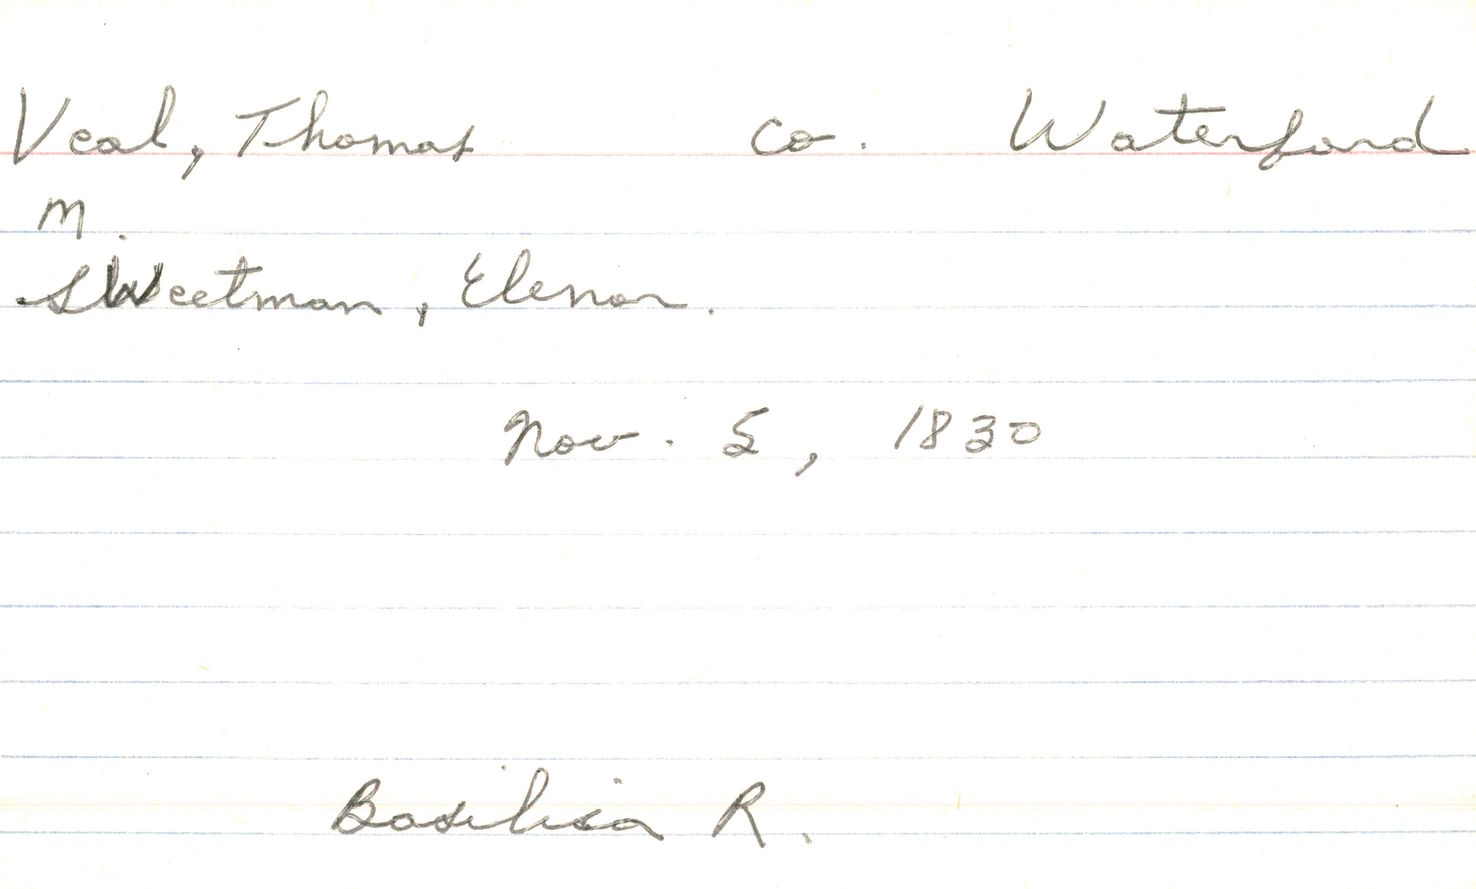 Veal, Thomas Co. Waterford
m.
Sweetman, Elenor.
Nov. 5, 1830
Basilica R.